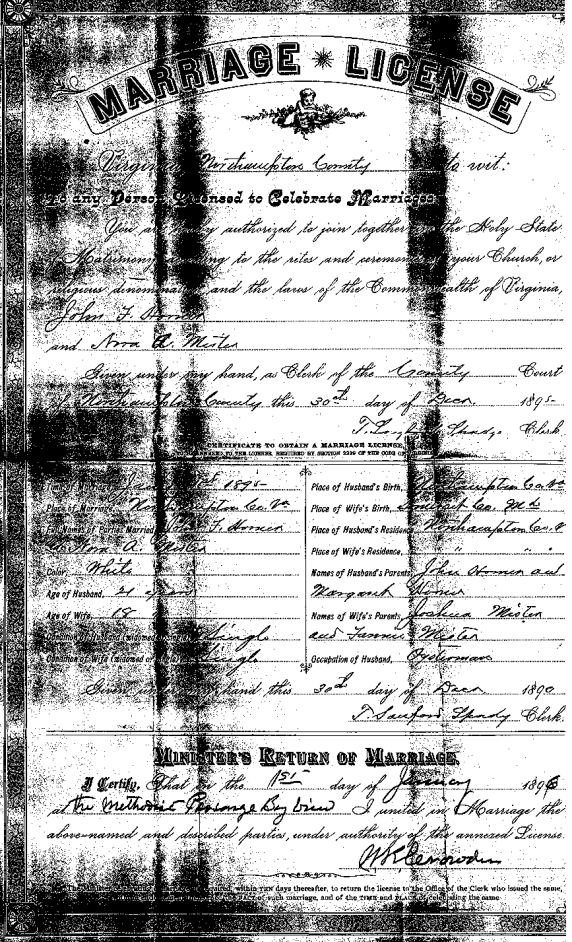 MARRIAGE * LICENSE
Virginia, Northampton County to wit:
To any Person Licensed to Celebrate Marriages
You are authorized to join together in the Holy State
Matrimony according to the rites and ceremonies your Church, or
religious denomination and the laws of the Commonwealth of Virginia,
John F.
and Nora A. Mister
Given under my hand, as Clerk of the County Court
Northampton County this 30th day of Decr. 1895
Clerk
CERTIFICATE TO OBTAIN A MARRIAGE LICENSE,
ANNEXED TO THE LICENSE, REQUIRED BY SECTION 2229 OF THE CODE OF
1895
Place of Marriage, Northampton Co. Va
Full Names of Parties Married, F.
Nora A. Mister
Color, White
Age of Husband, 21 years
Age of Wife, 18
Condition of Husband (widowed or single) Single
Condition of Wife (widowed or single) Single
Place of Husband's Birth, Northampton Co. Va
Place of Wife's Birth, Co. Md
Place of Husband's Residence, Northampton Co. V
Place of Wife's Residence, " " "
Names of Husband's Parents, John and
Margaret
Names of Wife's Parents, Joshua Mister
and Fannie Mister
Occupation of Husband, Oysterman
Given under hand this 30th day of Decr 1890
T. Sanford Spady Clerk.
MINISTER'S RETURN OF MARRIAGE.
I Certify, That on the 1st day of January 1896
at the Methodist Parsonage Bay View I united in Marriage the
above-named and described parties, under authority of the annexed License.
within TEN days thereafter, to return the license to the Office of the Clerk who issued the same,
of such marriage, and of the TIME and PLACE of celebrating the same